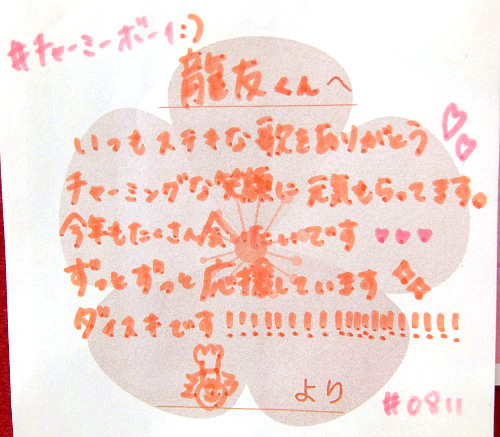 #チャーミーボーイ:)
龍友くんへ
いつもステキな歌をありがとう
チャーミングな笑顔に元気もらってます。
今年もたくさん会いたいです ♥♥♥
ずっとずっと応援しています
ダイスキです!!!!!!!!!!!!!!!!!!
より
#0811